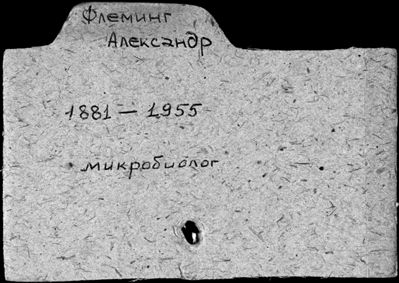 Флеминг
Александр
1881 — 1955
микробиолог